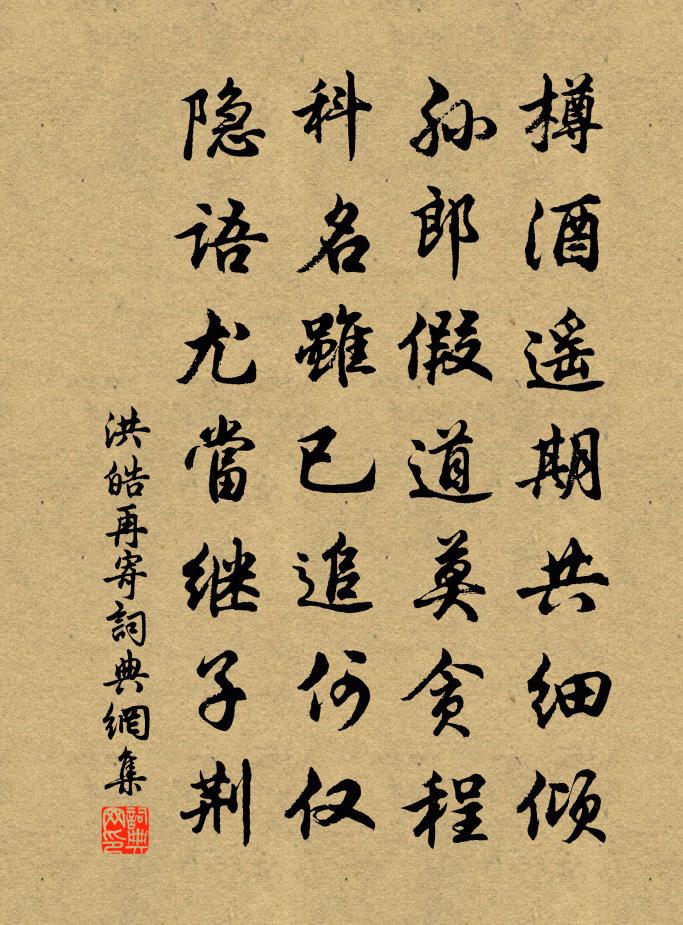 樽酒遥期共细倾
孙郎假道莫贪程
科名雖已追何仅
隐语尤當继子荆
洪皓再寄詞典網集
詞典网印